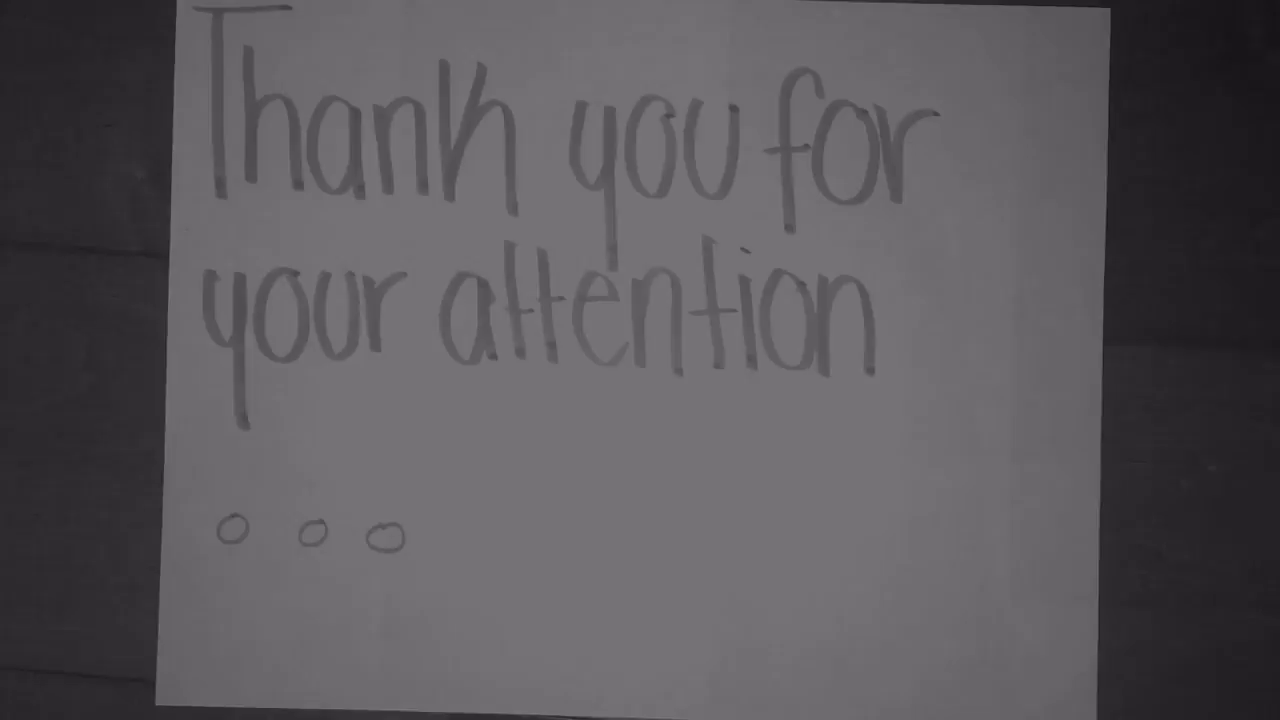 Thank you for
your attention
...